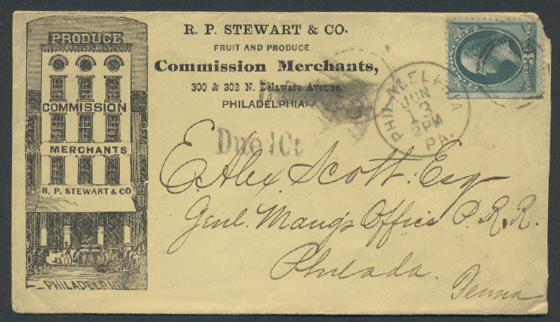 PRODUCE
COMMISSION
MERCHANTS
R. P. STEWART & CO
PHILADELPHIA
R. P. STEWART & CO.
FRUIT AND PRODUCE
Commission Merchants,
300 & 302 N. Delaware Avenue,
PHILADELPHIA.
Due 1 Ct
PHILADELPHIA
JUN
13
2PM
PA.
E Alex Scott Esq
Genl. Mang's Office P. R. R.
Philada.
Penna